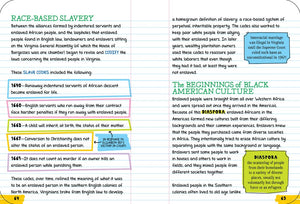 RACE-BASED SLAVERY
Between the alliances formed by indentured servants and
enslaved African people, and the loopholes that enslaved
people found in English law, landowners and enslavers sitting
on the Virginia General Assembly (of which the House of
Burgesses was one chamber) began to revise and CODIFY the
laws concerning the enslaved people in Virginia.
These SLAVE CODES included the following:
1640—Runaway indentured servants of African descent
became enslaved for life.
1660—English servants who run away from their contract
face harsher penalties if they run away with enslaved people.
1662—A child will inherit the status of their mother.
1667—Conversion to Christianity does not
alter the status of an enslaved person.
IN RESPONSE TO
ELIZABETH KEY'S
VICTORY IN COURT
1669—It does not count as murder if an owner kills an
enslaved person while punishing them.
These codes, over time, refined the meaning of what it was
to be an enslaved person in the southern English colonies of
North America. Virginians broke from English law to develop
64
a homegrown definition of slavery: a race-based system of
perpetual, inheritable property. The codes also worked to
keep poor white people from allying
with their enslaved peers. In later
years, wealthy plantation owners
used these codes to reassure poor
white laborers that even though
they had it bad, at least they
were not enslaved.
Interracial marriage
was illegal in Virginia
until the Supreme Court
ruled such laws are
unconstitutional in 1967!
THE BEGINNINGS OF BLACK
AMERICAN CULTURE
Enslaved people were brought from all over Western Africa
and were spread out once they arrived in the Americas.
Because of this DIASPORA, enslaved people in the
Americas formed new cultures built from their differing
backgrounds and their common experiences. Enslavers knew
that the people they purchased came from diverse societies
in Africa. They intentionally tried to erase African cultures by
separating people with the same background or language.
Enslavers sent some people to work
in houses and others to work in
fields, and they mixed people from
different societies together.
Enslaved people in the Southern
colonies often lived to old age (unlike
DIASPORA
the scattering of people
from their homelands
to a variety of diverse
places, usually not
voluntarily but through
force or as refugees.
65